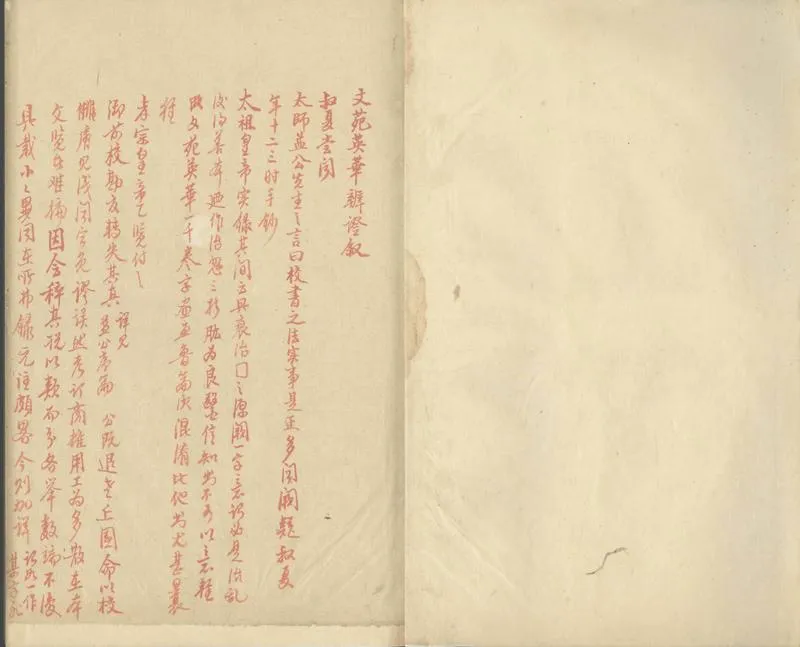 文苑英華辨證叙
叔夏嘗聞
太師益公先生之言曰校書之法實事是正多聞闕疑叔夏
年十二三時手鈔
太祖皇帝實錄其間云興衰治囗之源闕一字意謂必是治亂
後得善本廼作治忽三折肱為良醫信知書不可以意輕
改文苑英華一千卷字畫魚魯篇次混淆比他書尤甚曩
經
孝宗皇帝乙覽付之
御前校勘官轉失其真詳見益公序篇 公既退老丘園命以校
讎膚見淺聞寧免謬誤然考訂商榷用工為多散在本
文覽者難徧因會稡其說以類而分各舉數端不復
具載小小異同在所弗錄元注頗略今則加詳謂如一作某字非